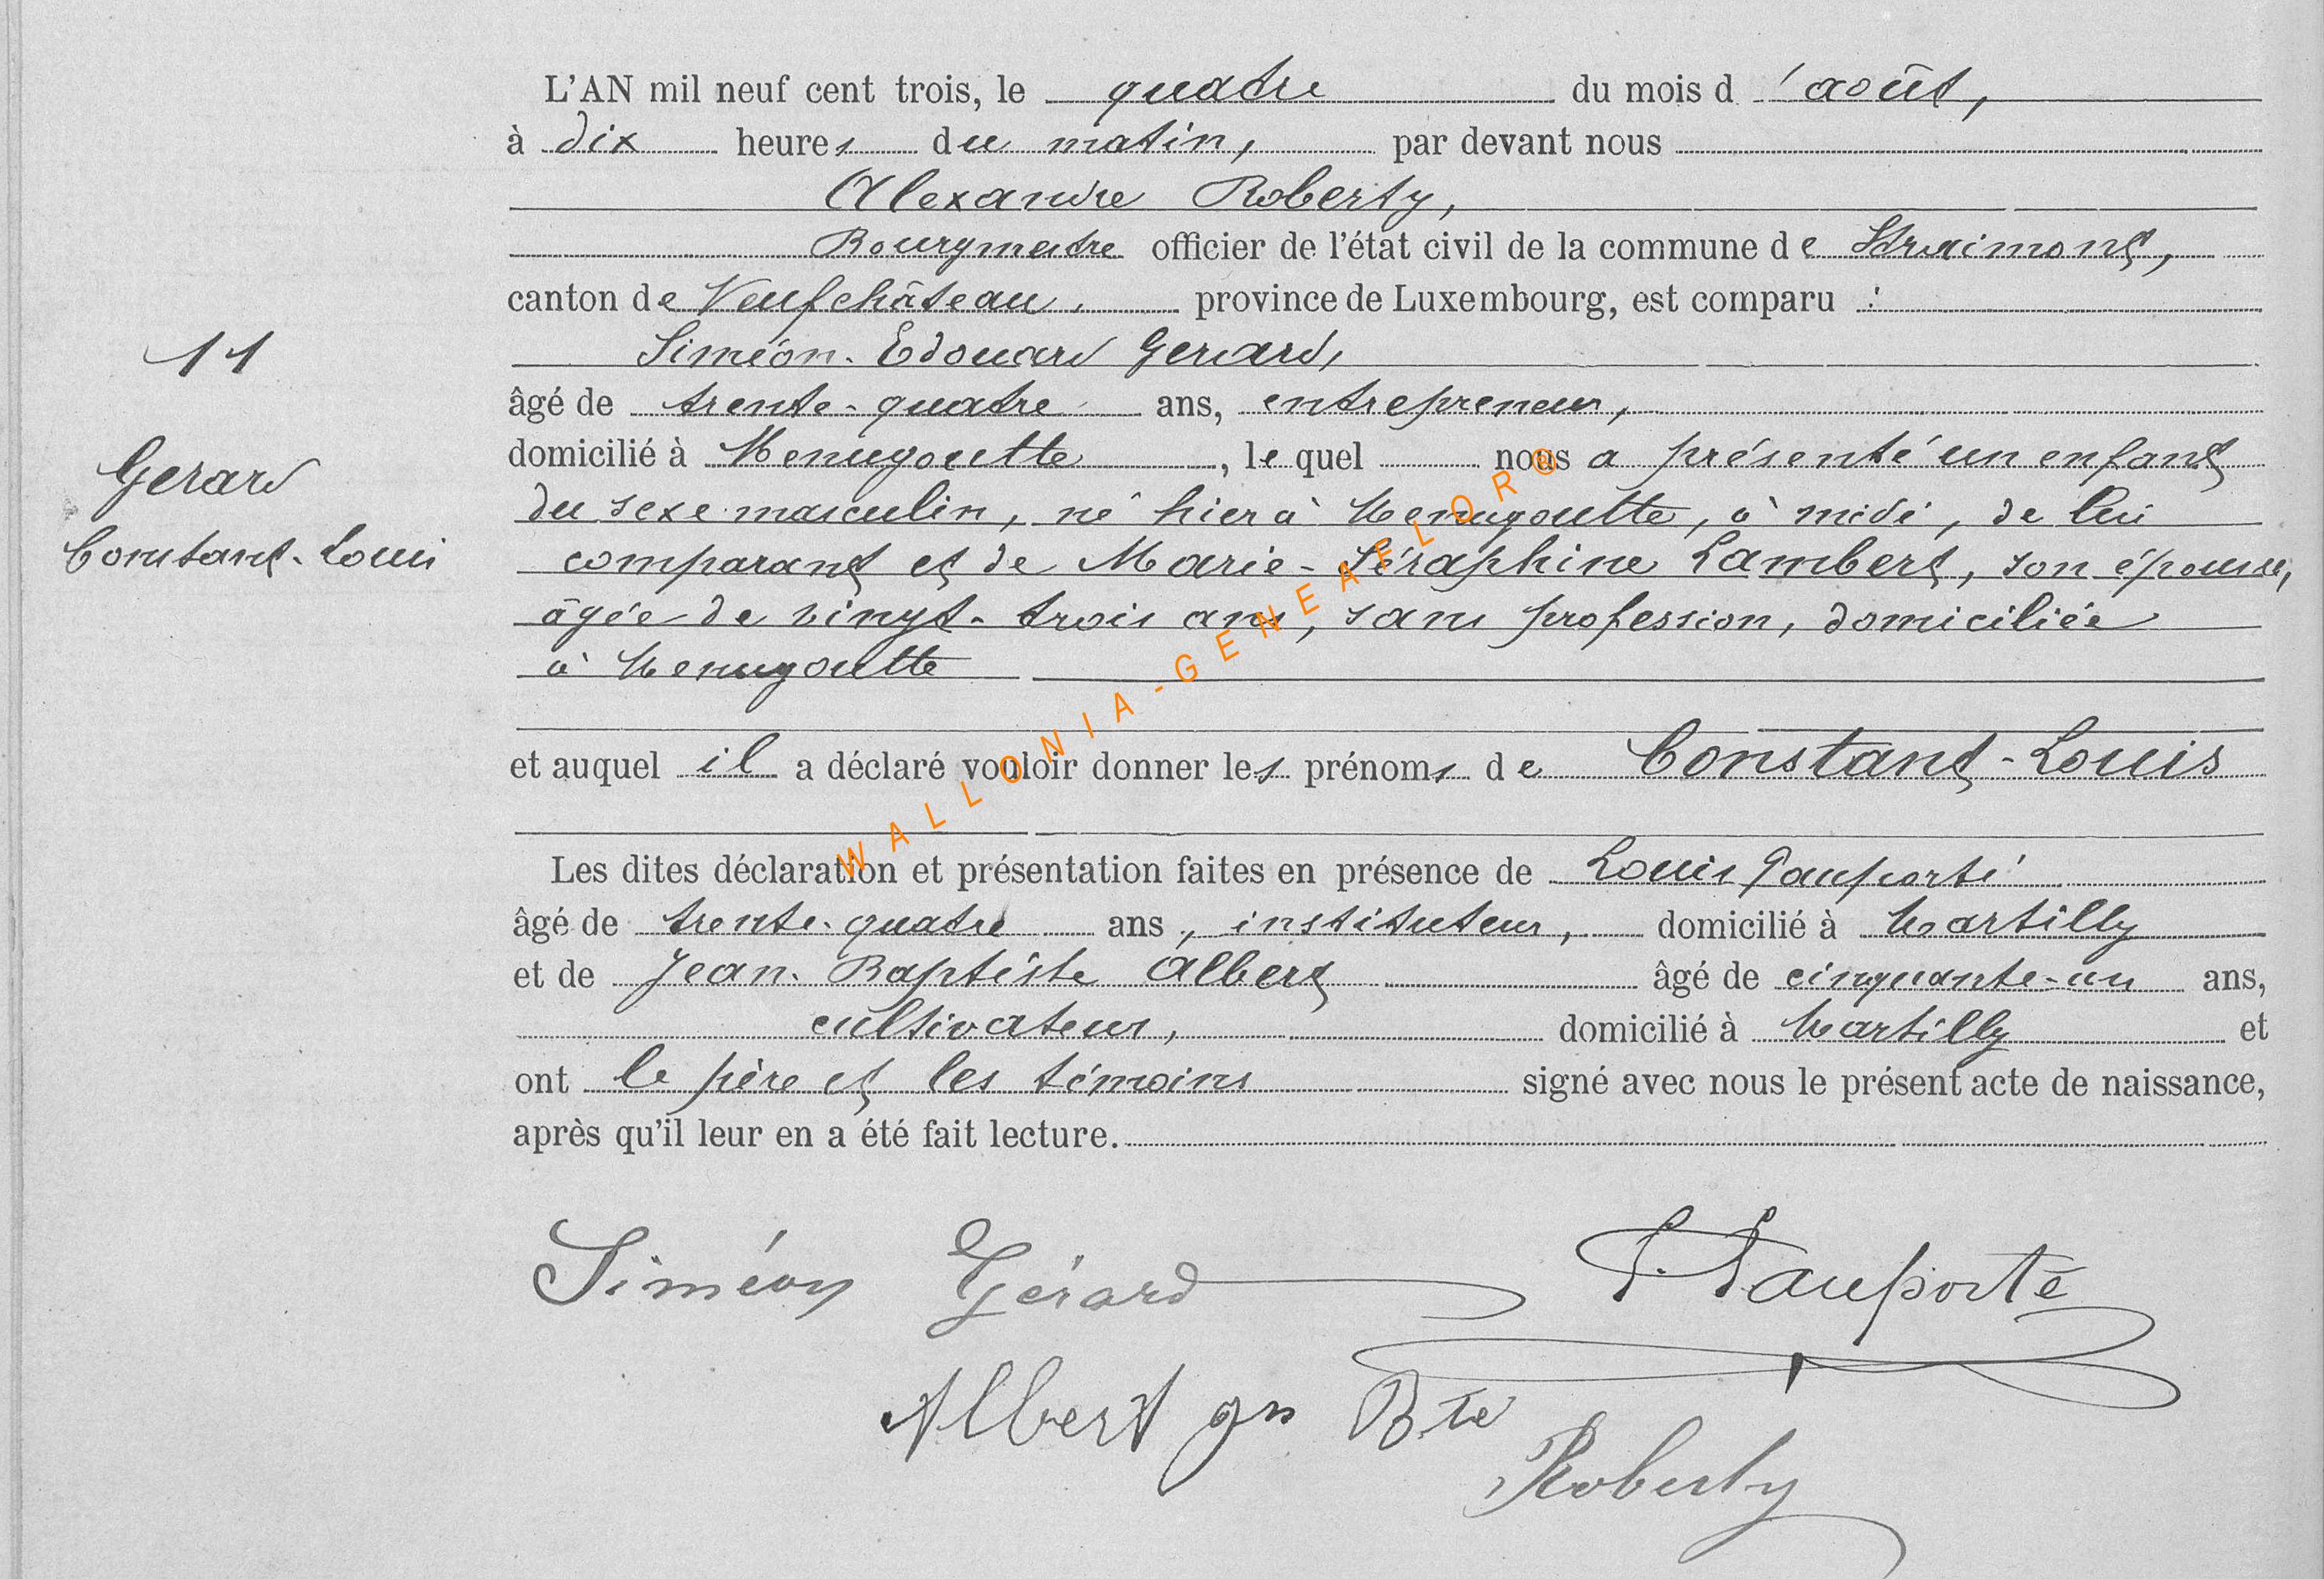 L'AN mil neuf cent trois, le quatre du mois d'août,
à dix heures du matin, par devant nous
Alexandre Roberty,
Bourgmestre officier de l'état civil de la commune de Straimont,
canton de Neufchâteau, province de Luxembourg, est comparu :
Siméon-Edouard Gerard,
11
âgé de trente-quatre ans, entrepreneur,
domicilié à Menugoutte, lequel nous a présenté un enfant
Gerard
du sexe masculin, né hier à Menugoutte, à midi, de lui
Constant-Louis
comparant et de Marie-Séraphine Lambert, son épouse,
âgée de vingt-trois ans, sans profession, domiciliée
à Menugoutte
et auquel il a déclaré vouloir donner les prénoms de Constant-Louis
Les dites déclaration et présentation faites en présence de Louis Pauporté
âgé de trente-quatre ans, instituteur, domicilié à Martilly
et de Jean-Baptiste Albert âgé de cinquante-un ans,
cultivateur, domicilié à Martilly et
ont le père et les témoins signé avec nous le présent acte de naissance,
après qu'il leur en a été fait lecture.
Siméon Gérard
Pauporté
Albert Jn Bte
Roberty
WALLONIA-GENEAFLOR®